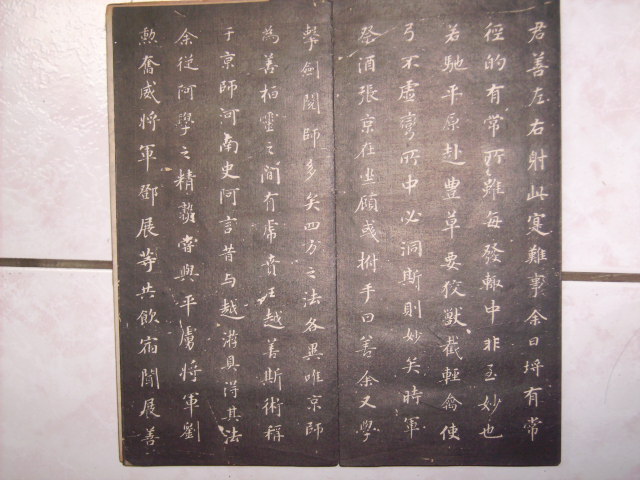 君善左右射此寔難事余曰埒有常
徑的有常所雖每發輒中非至妙也
若馳平原赴豐草要狡獸截輕禽使
弓不虛彎所中必洞斯則妙矣時軍
祭酒張京在坐顧彧拊手曰善余又學
擊劍閱師多矣四方之法各異唯京師
為善桓靈之間有虎賁王越善斯術稱
于京師河南史阿言昔与越遊具得其法
余從阿學之精熟嘗與平虜將軍劉
勳奮威將軍鄧展等共飲宿聞展善